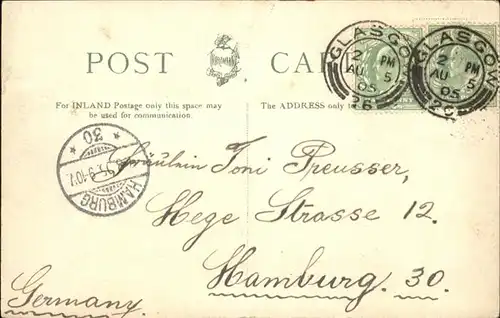 POST CAR
GLASGOW
2 PM
AU 5
05
26
GLASGOW
2 PM
AU 5
05
For INLAND Postage only this space may
be used for communication.
The ADDRESS only to
HAMBURG
* 30 *
9-10V.
Fräulein Toni Preusser,
Hege Strasse 12.
Hamburg. 30.
Germany.